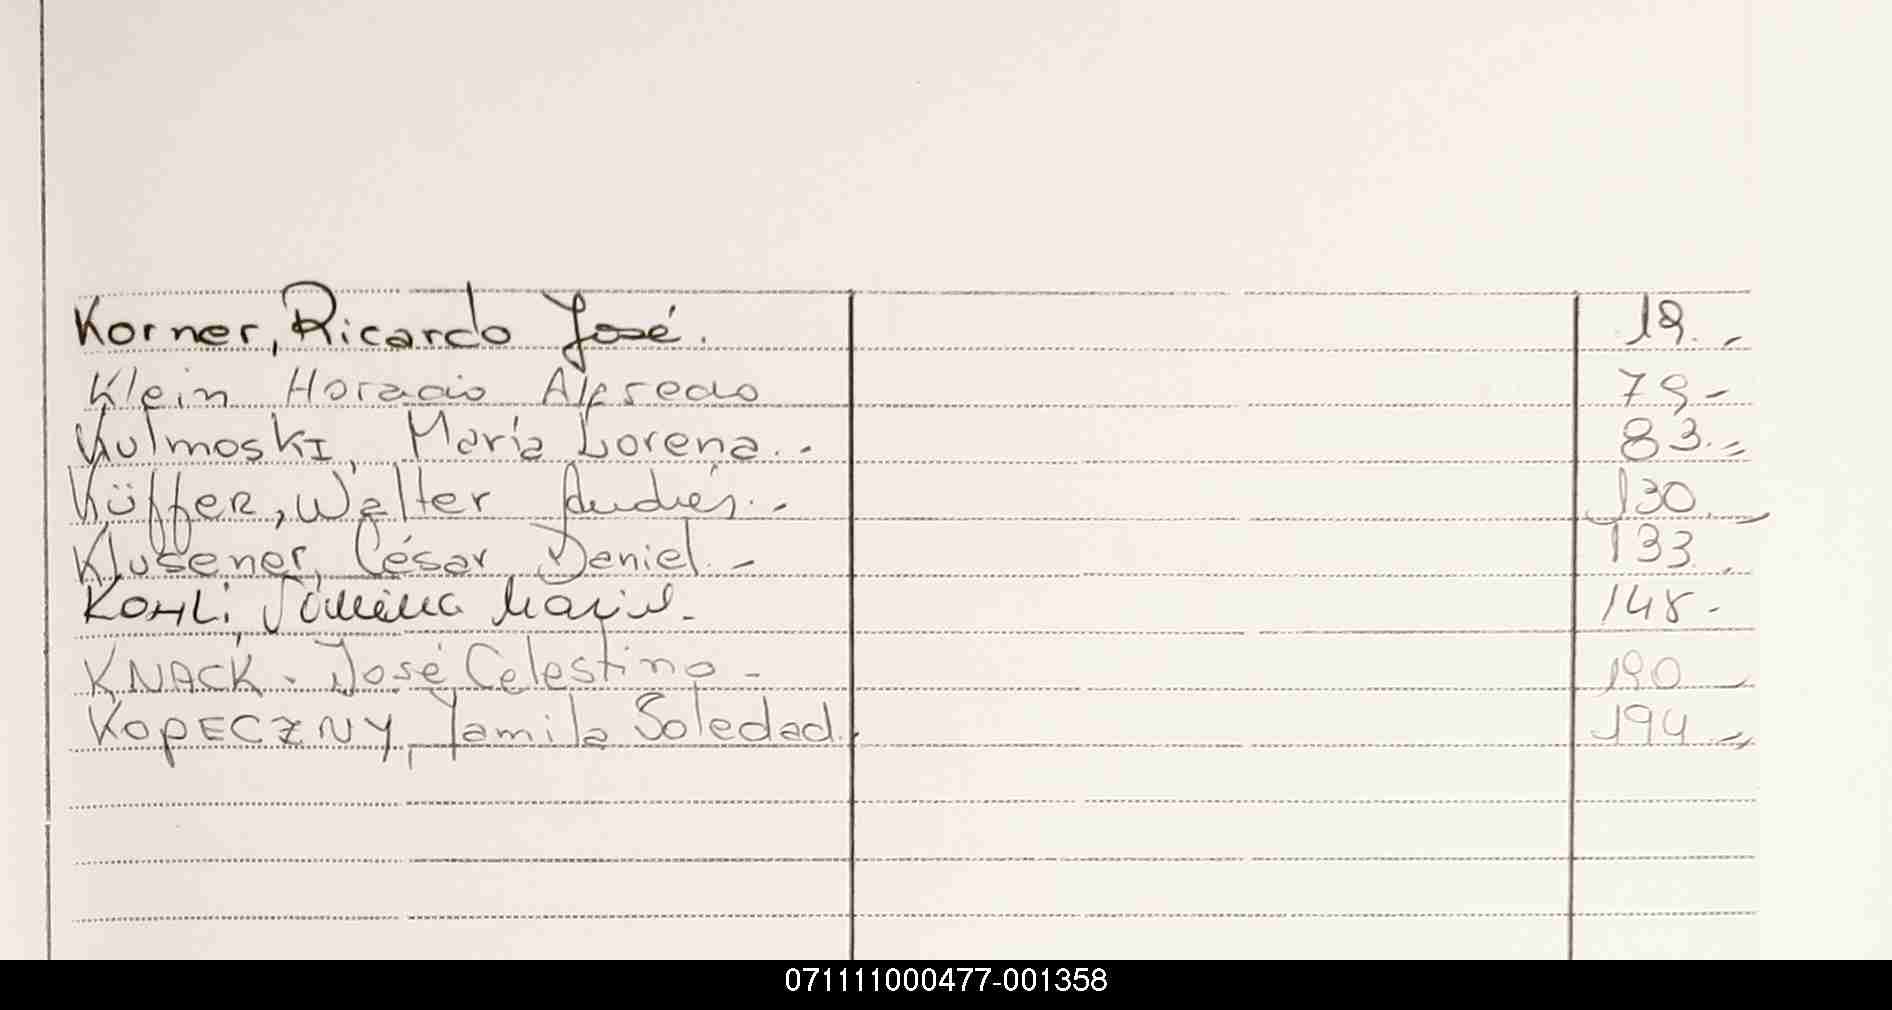 Korner, Ricardo José. 19.-
Klein Horacio Alfredo 79-
Kulmoski, María Lorena.- 83.-
Küffer, Walter Andrés.- 130
Klusener, César Daniel.- 133
KOHLi Jimena Mariel- 148-
KNACK. José Celestino- 190
KOPECZNY, Yamila Soledad. 194.-
071111000477-001358